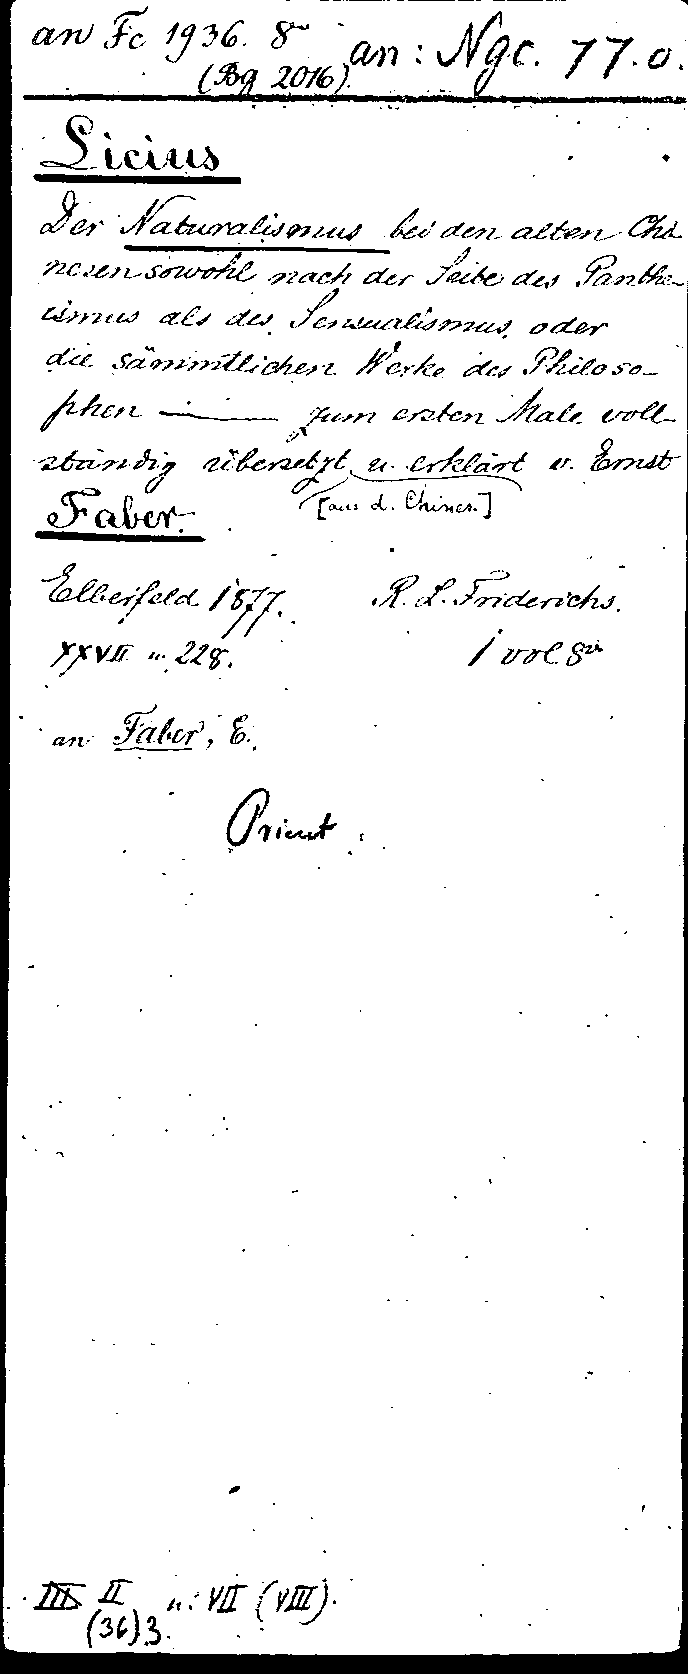 an Fc 1936. 8vo an: Ngc. 77.0.
(Bg 2016)
Licius
Der Naturalismus bei den alten Chi-
nesen sowohl nach der Seite des Panthe-
ismus als des Sensualismus, oder
die sämmtlichen Werke des Philoso-
phen —— zum ersten Male voll-
ständig übersetzt u. erklärt v. Ernst
[aus d. Chines.]
Faber.
Elberfeld 1877. R. L. Friderichs.
XXVII u. 228. 1 vol 8vo
an Faber, E.
Orient
III II u: VII (VIII).
(36) 3.